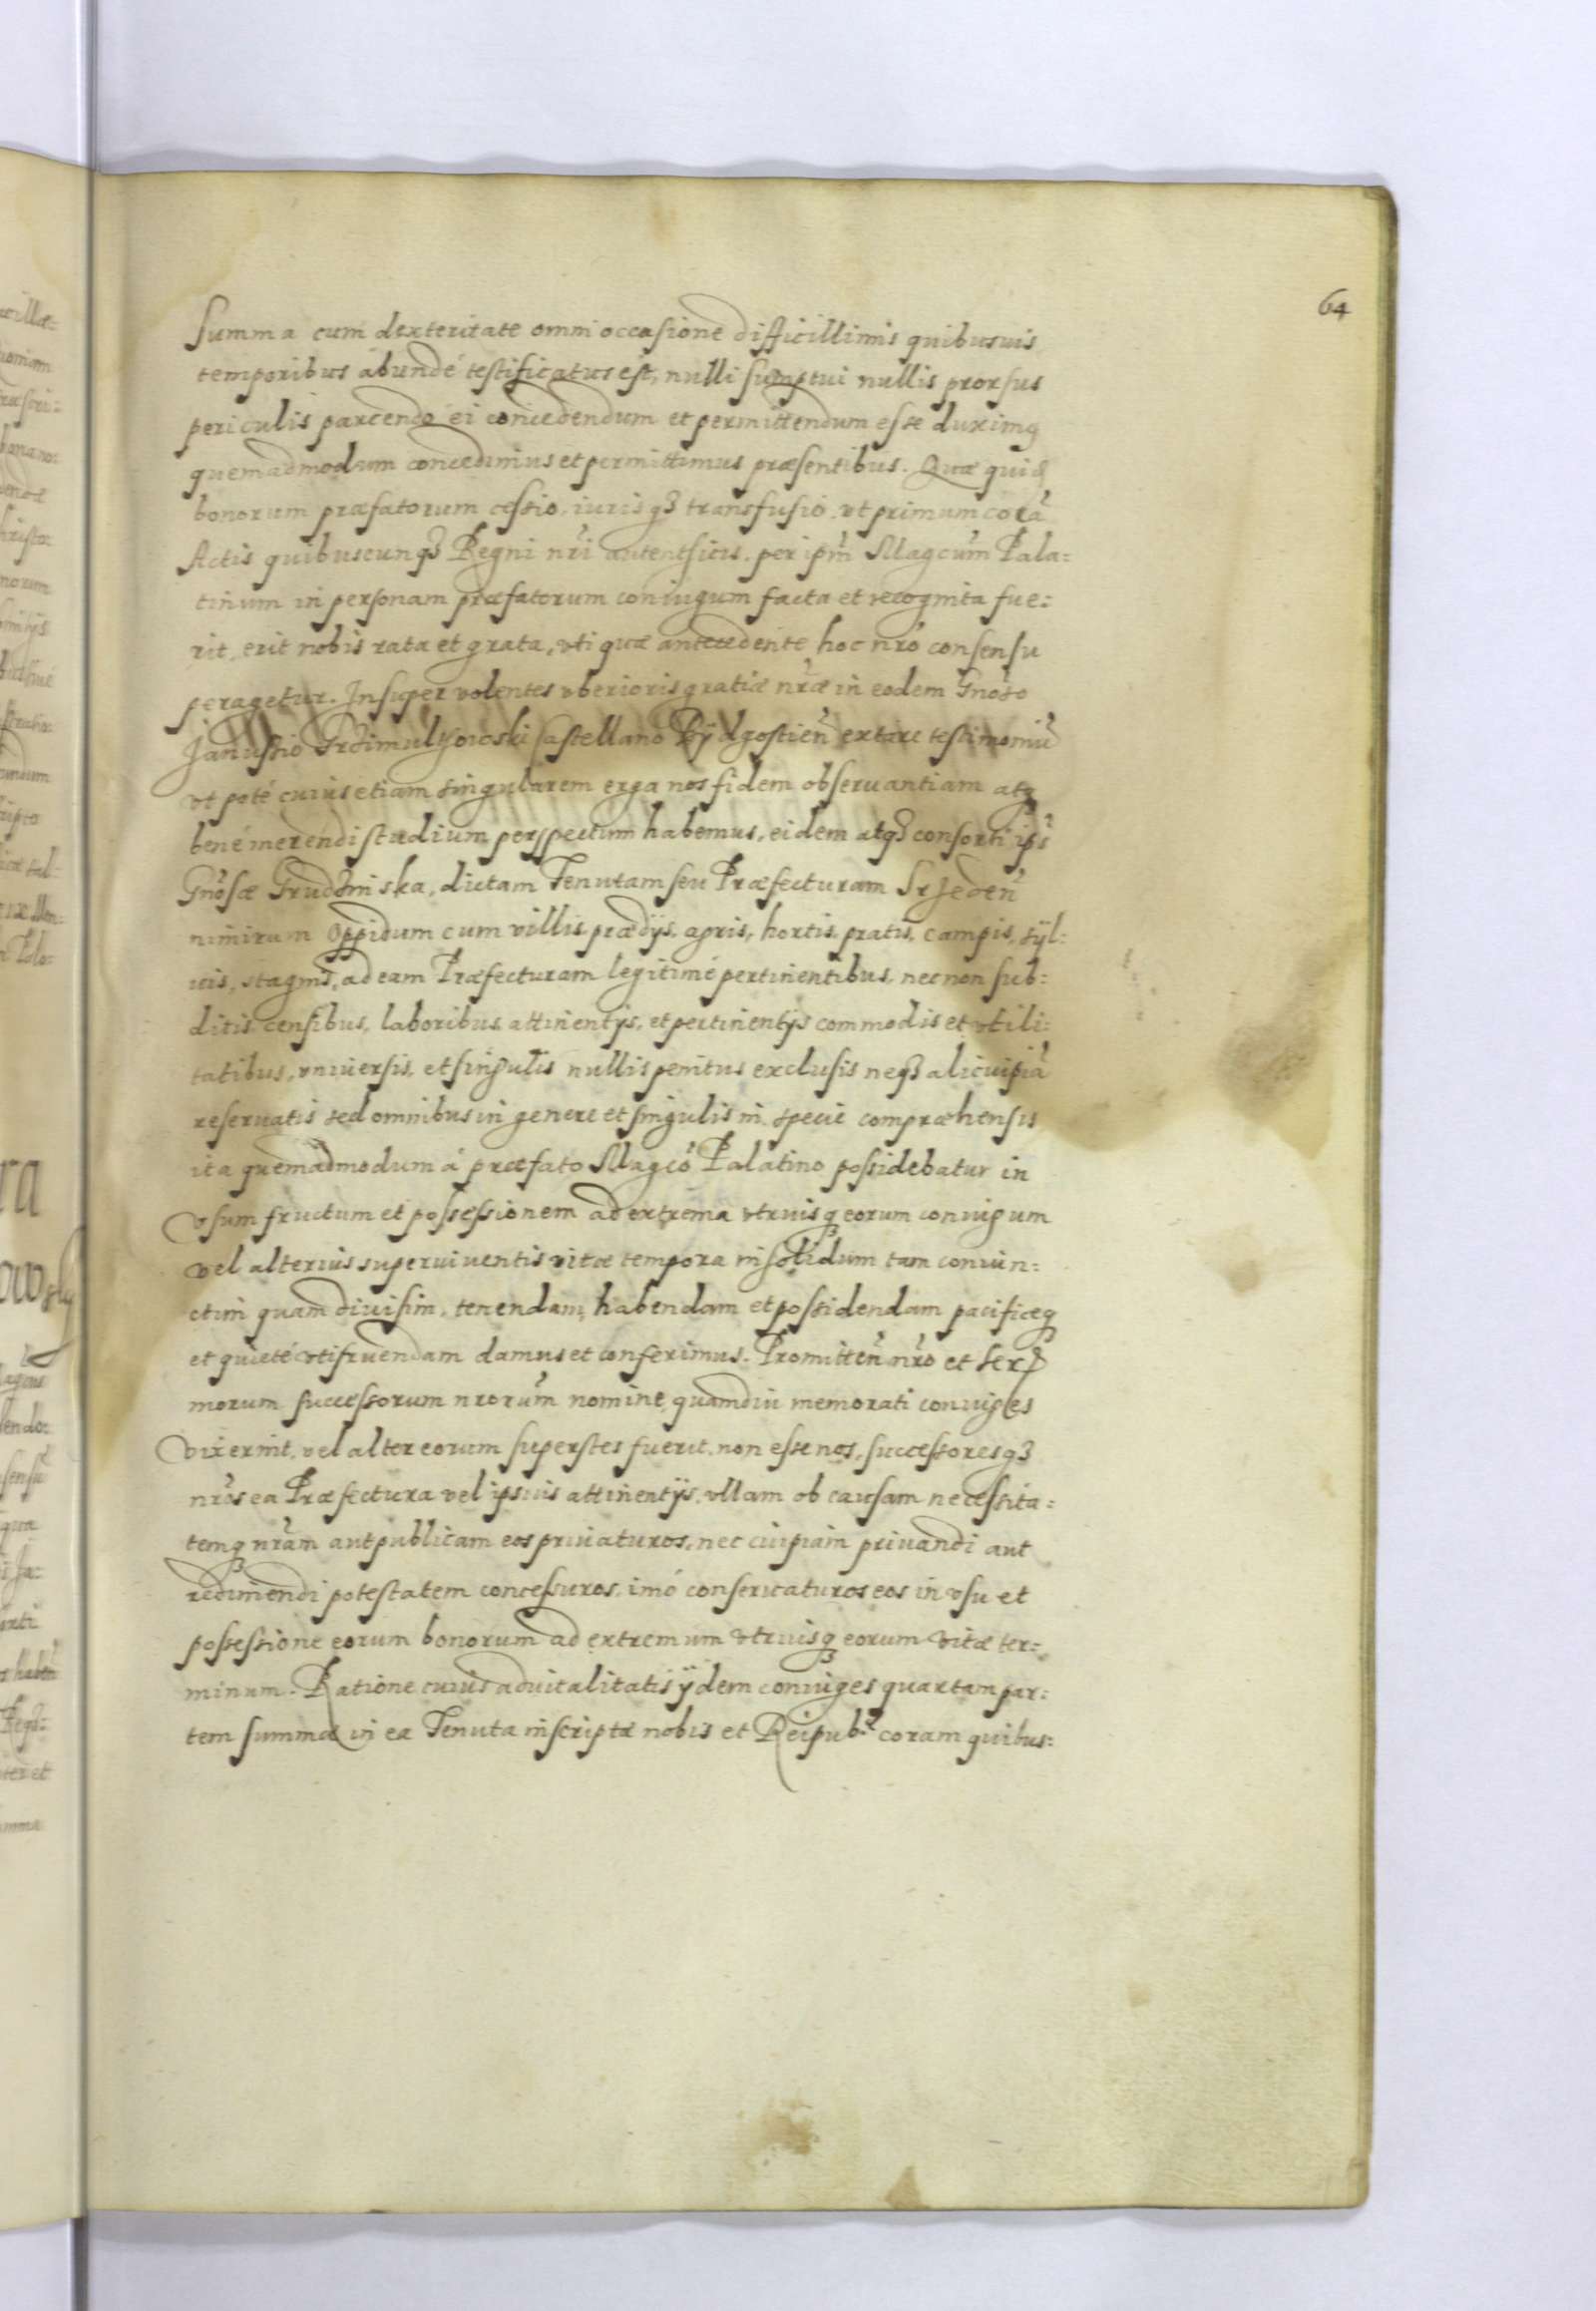 64
Summa cum dexteritate omni occasione difficillimis quibusuis
temporibus abundé testificatus est, nulli sumptui nullis prorsus
periculis parcendo ei concedendum et permittendum esse duximꝰ
quemadmodum concedimus et permittimus præsentibus. Quæ quid̃
bonorum præfatorum cessio, iurisqꝫ transfusio, vt primum corã
Actis quibuscunqꝫ Regni nr̃i autenticis, per ipm̃ Magcum̃ Pala=
tinum in personam præfatorum coniugum facta et recognita fue=
rit, erit nobis rata et grata, vti quæ antecedente hoc nrõ consensu
peragetur. Insuper volentes vberioris gratiæ nræ̃ in eodem Gnõso
Janussio Castellano Bÿdgostien̄ extare testimoniũ
vt poté cuius etiam singularem erga nos fidem obseruantiam atqꝫ
bené merendi studium perspectum habemus, eidem atqꝫ consorti ipsĩ
Gnõsæ Grudzinska, dictam Tenutam seu Præfecturam Srzeden̄
nimirum Oppidum cum villis, prædijs, agris, hortis, pratis, campis, sÿl=
uis, stagnis, ad eam Præfecturam legitimé pertinentibus, nec non sub=
ditis, censibus, laboribus, attinentijs, et pertinentijs commodis et vtili=
tatibus, vniuersis, et singulis nullis penitus exclusis neqꝫ alicuipiã
reseruatis sed omnibus in genere et singulis in specie compræhensis
ita quemadmodum á præfato Magcõ Palatino possidebatur in
vsum fructum et possessionem ad extrema vtriusqꝫ eorum coniugum
vel alterius superuiuentis vitæ tempora insolidum tam coniun=
ctim quam diuisim, tenendam, habendam et possidendam pacificeqꝫ
et quieté vtifruendam damus et conferimus. Promitten̄ nrõ et Ser
morum successorum nrorum̃ nomine, quamdiu memorati coniuges
vixerint, vel alter eorum superstes fuerit, non esse nos, successoresqꝫ
nrõs ea Præfectura vel ipsius attinentijs, vllam ob causam necessita=
temqꝫ nrãm aut publicam eos priuaturos, nec cuipiam priuandi aut
redimendi potestatem concessuros, imó conseruaturos eos in vsu et
possessione eorum bonorum ad extremum vtriusqꝫ eorum vitæ ter=
minum. Ratione cuius aduitalitatis ijdem coniuges quartam par=
tem summæ in ea Tenuta inscriptæ nobis et Reipub: coram quibus=